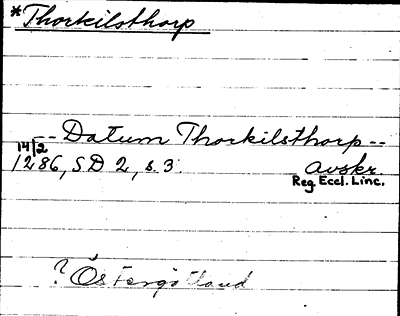 *Thorkilsthorp
-- Datum Thorkilsthorp --
14/2
1286, SD 2, s. 3. avskr.
Reg. Eccl. Linc.
? Östergötland